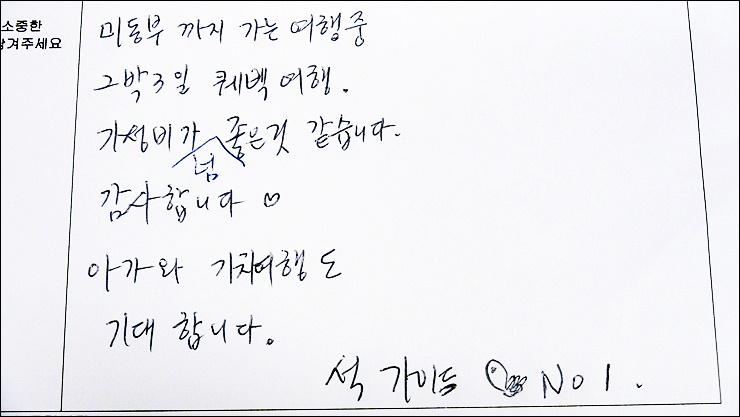 소중한
남겨주세요
미동부 까지 가는 여행중
2박3일 퀘벡 여행.
가성비가 넘 좋은것 같습니다.
감사합니다 ♡
아가와 기차여행도
기대 합니다.
석 가이드 👍 NO 1.